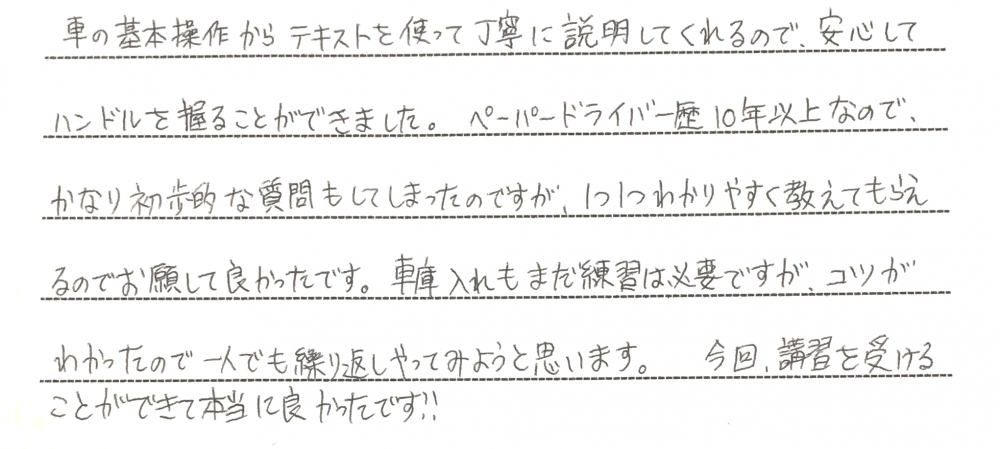 車の基本操作からテキストを使って丁寧に説明してくれるので、安心して
ハンドルを握ることができました。 ペーパードライバー歴10年以上なので、
かなり初歩的な質問もしてしまったのですが、1つ1つわかりやすく教えてもらえ
るのでお願して良かったです。車庫入れもまだ練習は必要ですが、コツが
わかったので一人でも繰り返しやってみようと思います。 今回、講習を受ける
ことができて本当に良かったです!!